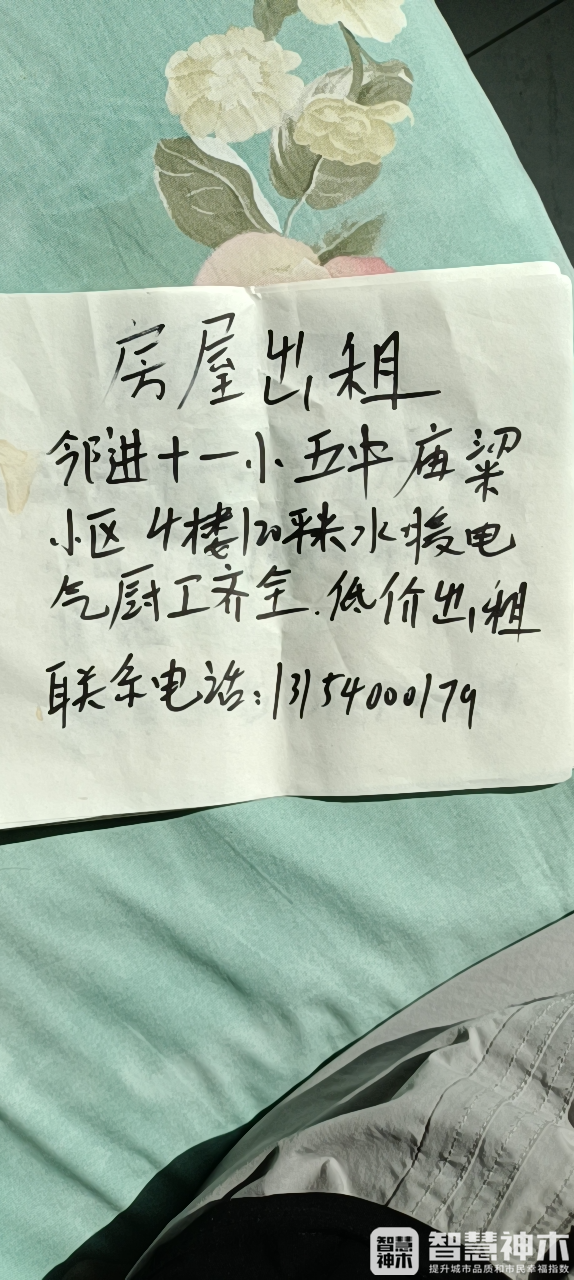 房屋出租
邻进十一小五中庙梁
小区4楼120平米水暖电
气厨工齐全.低价出租
联系电话:13154000179
智慧神木
智慧神木
提升城市品质和市民幸福指数